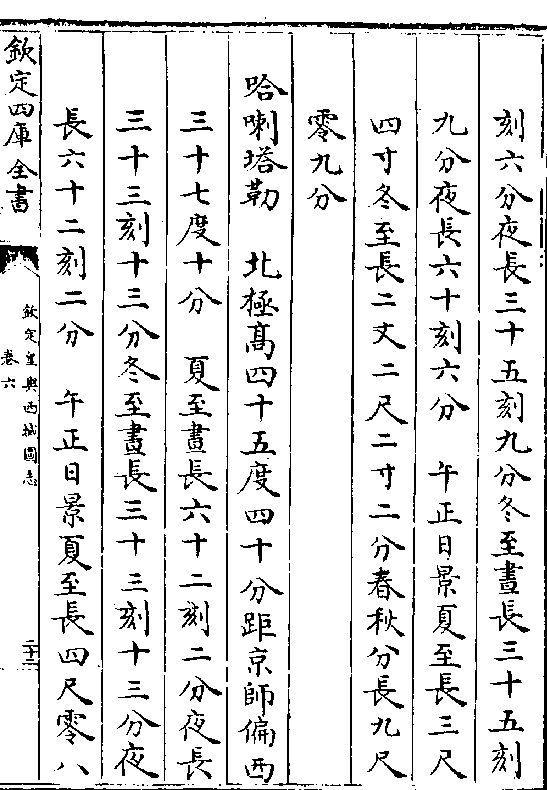 刻六分夜長三十五刻九分冬至晝長三十五刻
九分夜長六十刻六分　午正日景夏至長三尺
四寸冬至長二丈二尺二寸二分春秋分長九尺
零九分
哈喇塔勒　北極高四十五度四十分距京師偏西
三十七度十分　夏至晝長六十二刻二分夜長
三十三刻十三分冬至晝長三十三刻十三分夜
長六十二刻二分　午正日景夏至長四尺零八
欽定四庫全書
欽定皇輿西域圖志
卷六
二十二